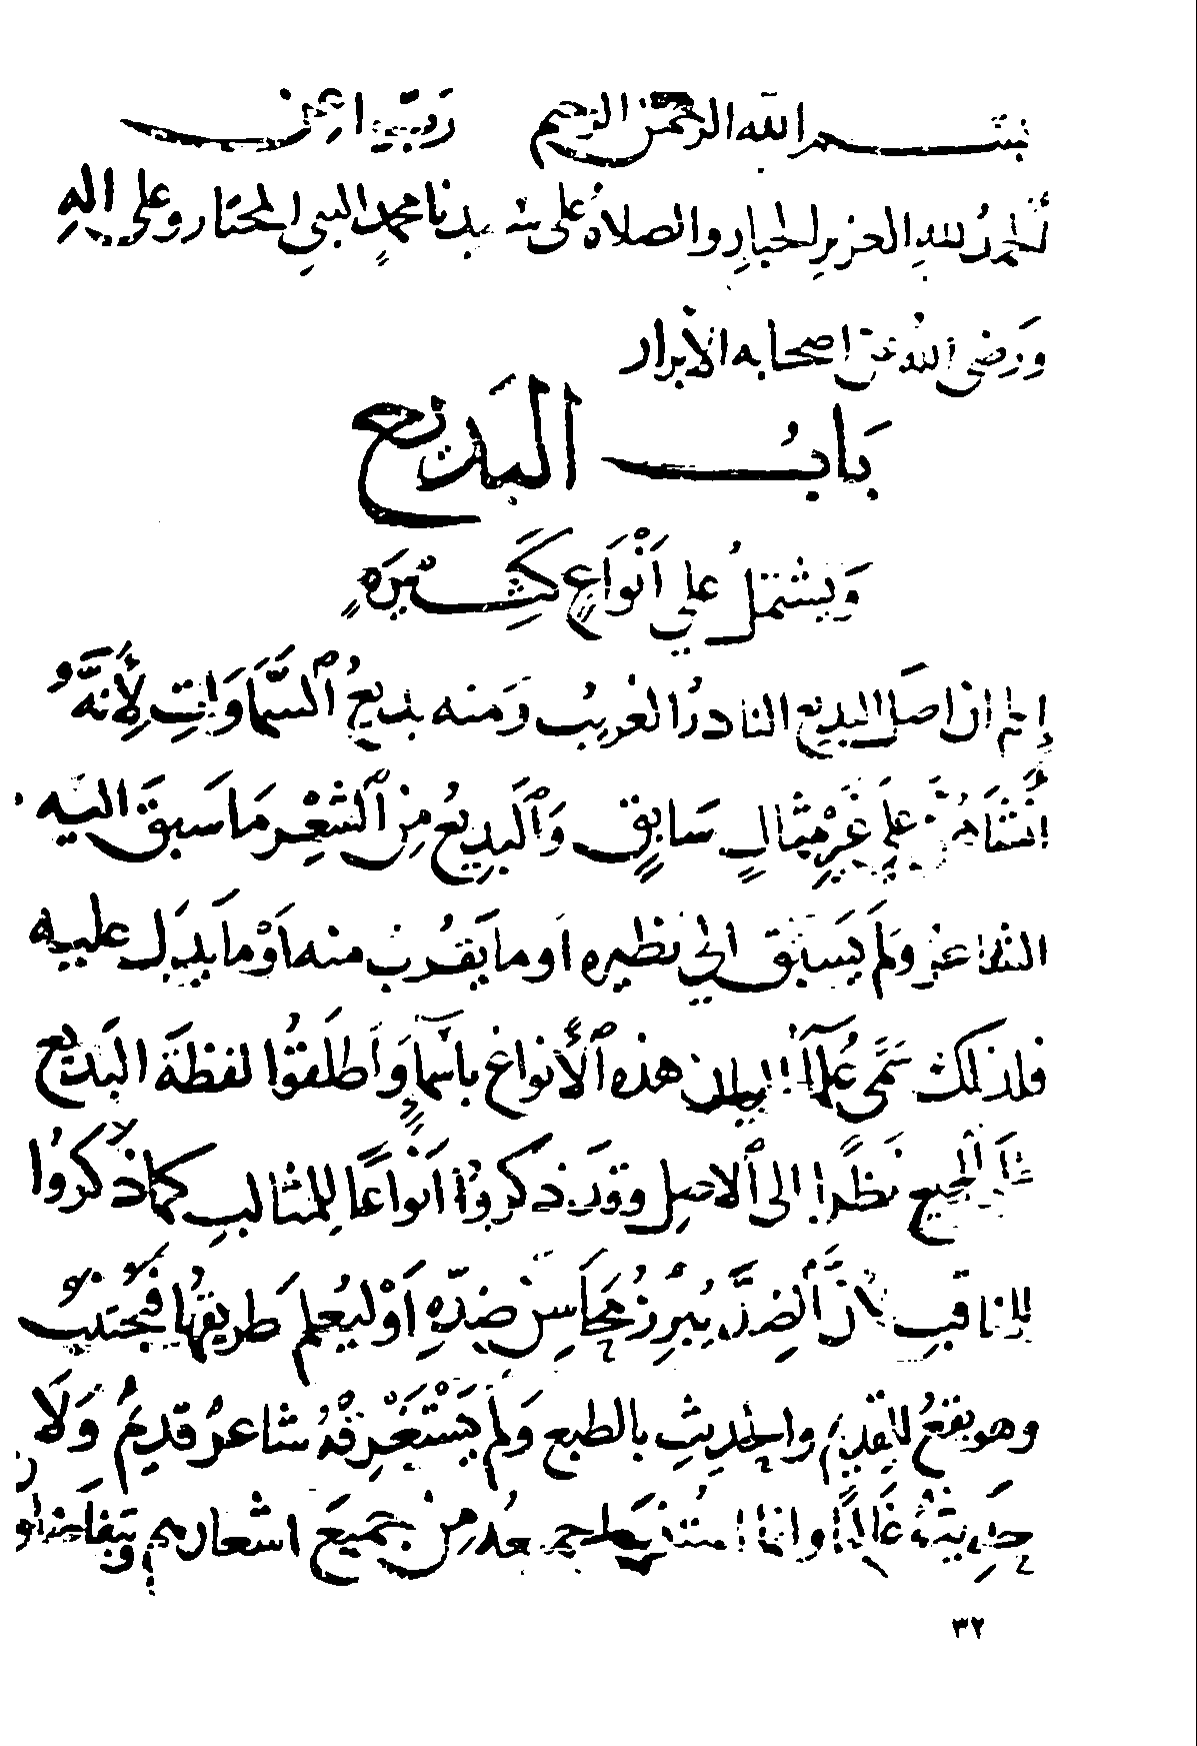 بسم الله الرحمن الرحيم رب اعن
الحمدُ للهِ العزيزِ الجبارِ والصلاةُ على سيدنا محمدٍ النبي المختار وعلى الهِ
وَرَضى اللهُ عَن اصحابه الأبرار
بَابُ البَديع
وَيشتملُ علي اَنْوَاعٍ كَثيرَةٍ
إعلم ان اصل البديع النادرُ الغريبُ وَمنه بديعُ ٱلسَّمَاوَاتِ لِأَنَّهُ
انشَاهُنَّ علَي غَيْرِ مِثَالٍ سَابِقٍ وَٱلبَدِيعُ مِن ٱلشعْرِ مَا سَبقَ اليه
الشاعرُ وَلَم يَسبَق الي نظيره او ما يَقرُبُ منه اَوْ ما يَدل عليه
فلذلك سَمَّى عُلماَ البيان هذه ٱلأنواعَ باَسماءٍ وَاَطلَقوُا لفظةَ البَديع
علَى الجميع نظَرًا الى ٱلاصلِ وقد ذكروا اَنْوَاعًا لِلمثالبِ كما ذكروُا
للمناقبِ لأنَّ ٱلضدَّ يُبْرِزُ مَحَاسِنَ ضِدّهِ اَوْ ليُعلمَ طريقُها فَيُجتَنبُ
وهو يقعُ للقديمِ والحديثِ بالطبع وَلم يَسْتَغْرِقْهُ شاعرٌ قديمٌ وَلَا
حَدِيثٌ غَالبًا وانا جمعُه مِنْ جميعَ اشعارهم
٣٢